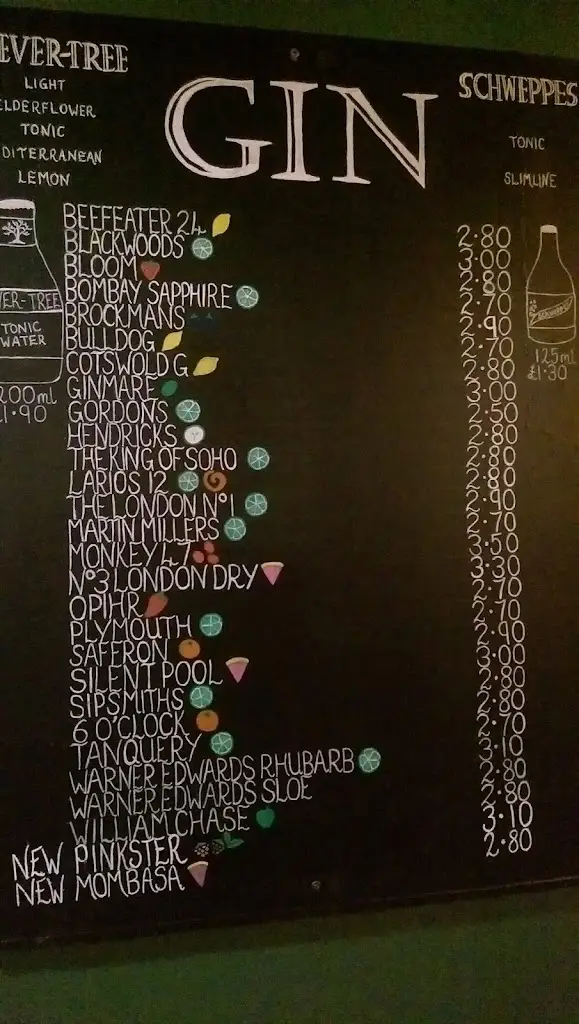 EVER-TREE
LIGHT
ELDERFLOWER
TONIC
DITERRANEAN
LEMON
VER-TREE
TONIC
WATER
200ml
£1.90
GIN
SCHWEPPES
TONIC
SLIMLINE
Schweppes
125ml
£1.30
BEEFEATER 24
BLACKWOODS
BLOOM
BOMBAY SAPPHIRE
BROCKMANS
BULLDOG
COTSWOLD G
GINMARE
GORDONS
HENDRICKS
THE KING OF SOHO
LARIOS 12
THE LONDON Nº1
MARTIN MILLERS
MONKEY 47
Nº3 LONDON DRY
OPIHR
PLYMOUTH
SAFFERON
SILENT POOL
SIPSMITHS
6 O'CLOCK
TANQUERY
WARNER EDWARDS RHUBARB
WARNER EDWARDS SLOE
WILLIAM CHASE
NEW PINKSTER
NEW MOMBASA
2.80
3.00
2.80
2.70
2.90
2.70
2.80
3.00
2.50
2.80
2.80
2.90
2.70
2.50
3.30
2.70
2.70
2.90
3.00
2.80
2.80
2.70
3.10
2.80
2.80
3.10
2.80